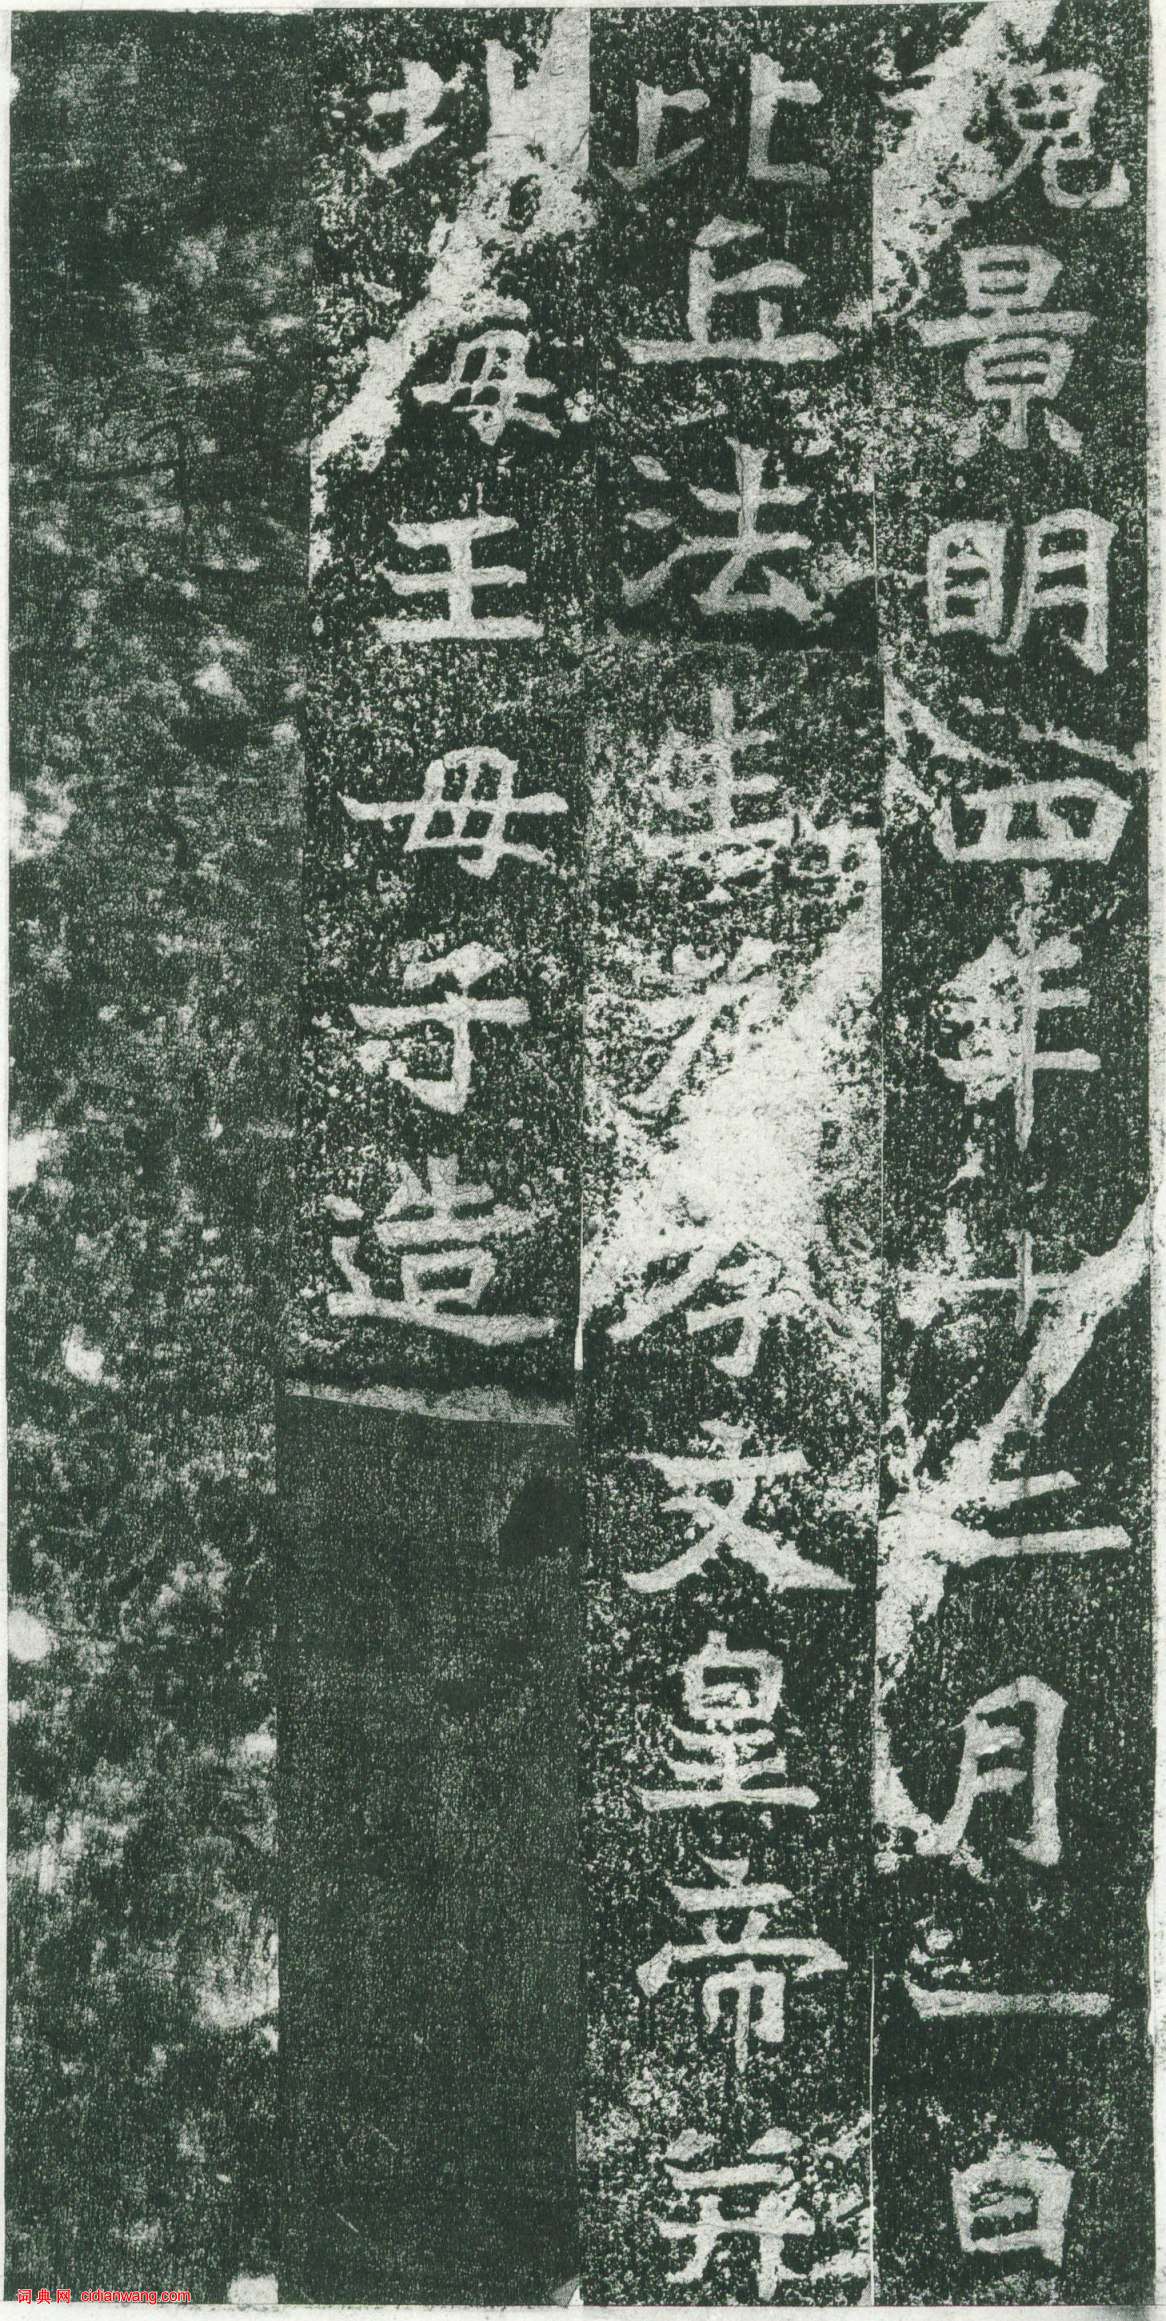 魏景明四年十二月一日
比丘法生為孝文皇帝并
北海王母子造
詞典网 cidianwang.com